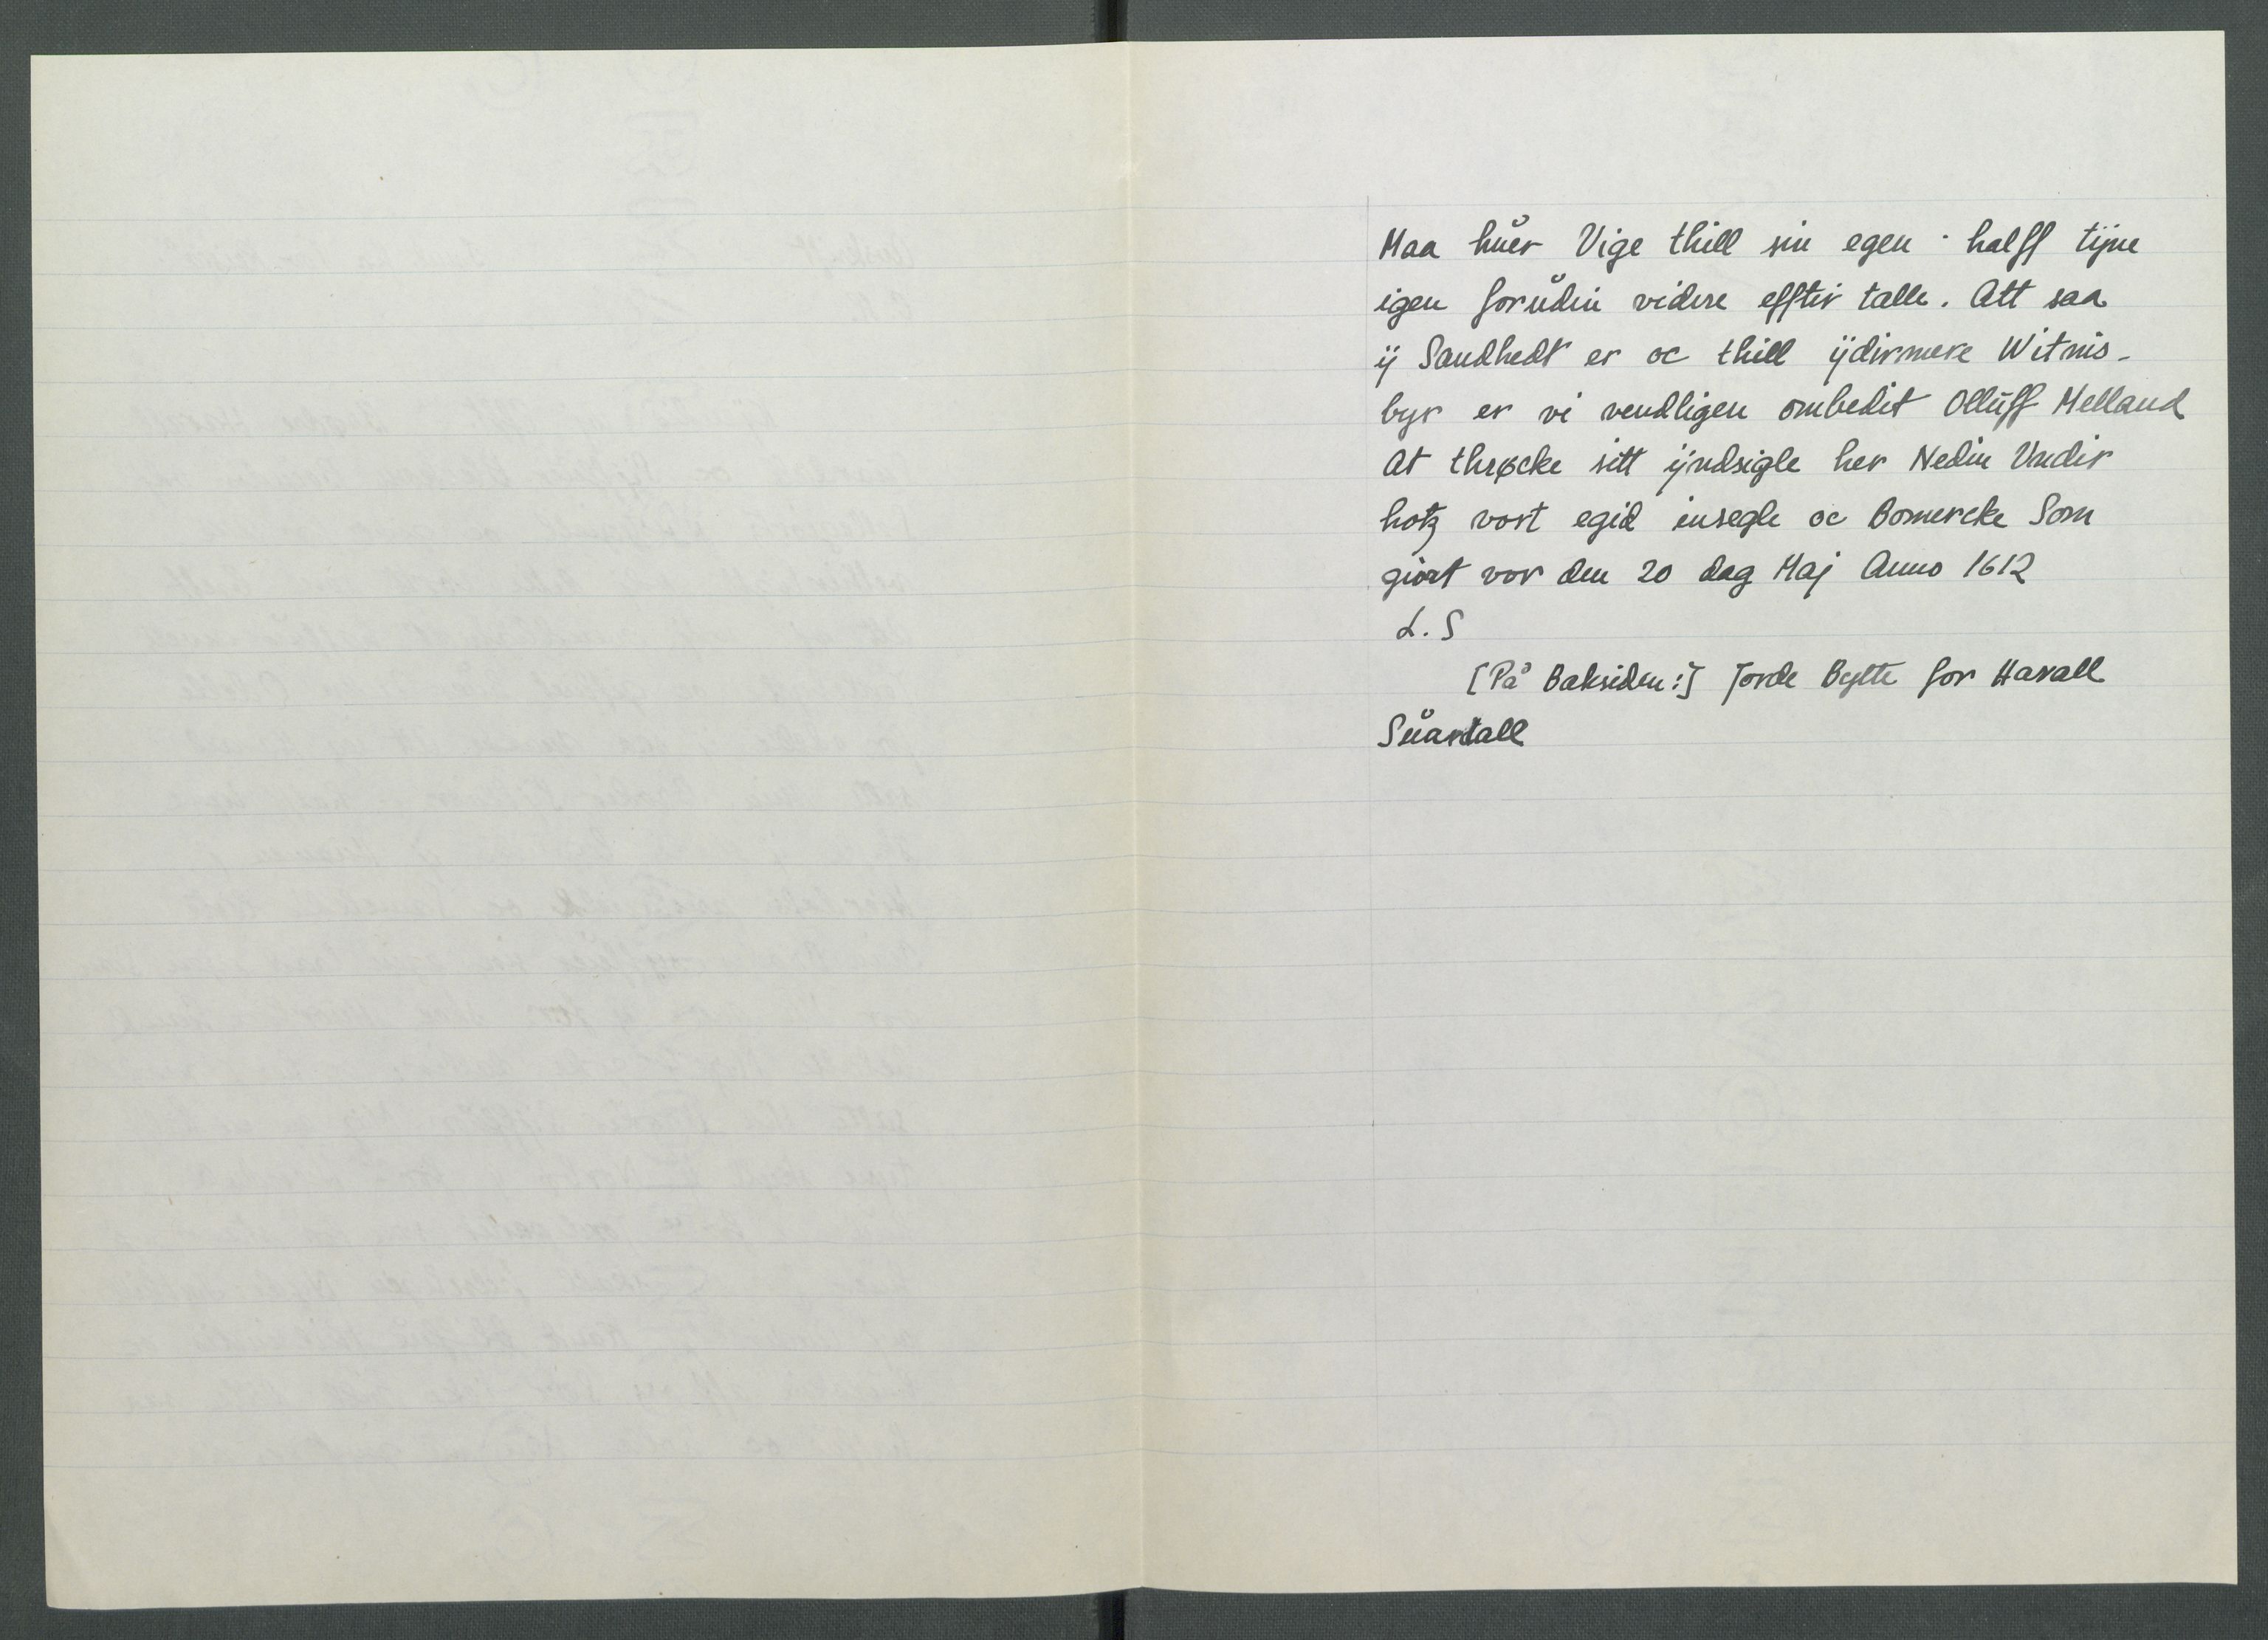 Maa hůer Vige thill sin egen halff tijne
igen forůdin videre efftir talle. Att saa
ij Sandhedt er oc thill ijdirmere Witnis-
byr er vi vendligen ombedit Ollůff Melland
At thrøcke sitt ijndsigle her Nedin Vndir
hotz vort egid insegle oc Bomercke Som
giort vor den 20 dag Maj Anno 1612
L. S
[På Baksiden:] Jorde Bytte for Harall
Sůartall